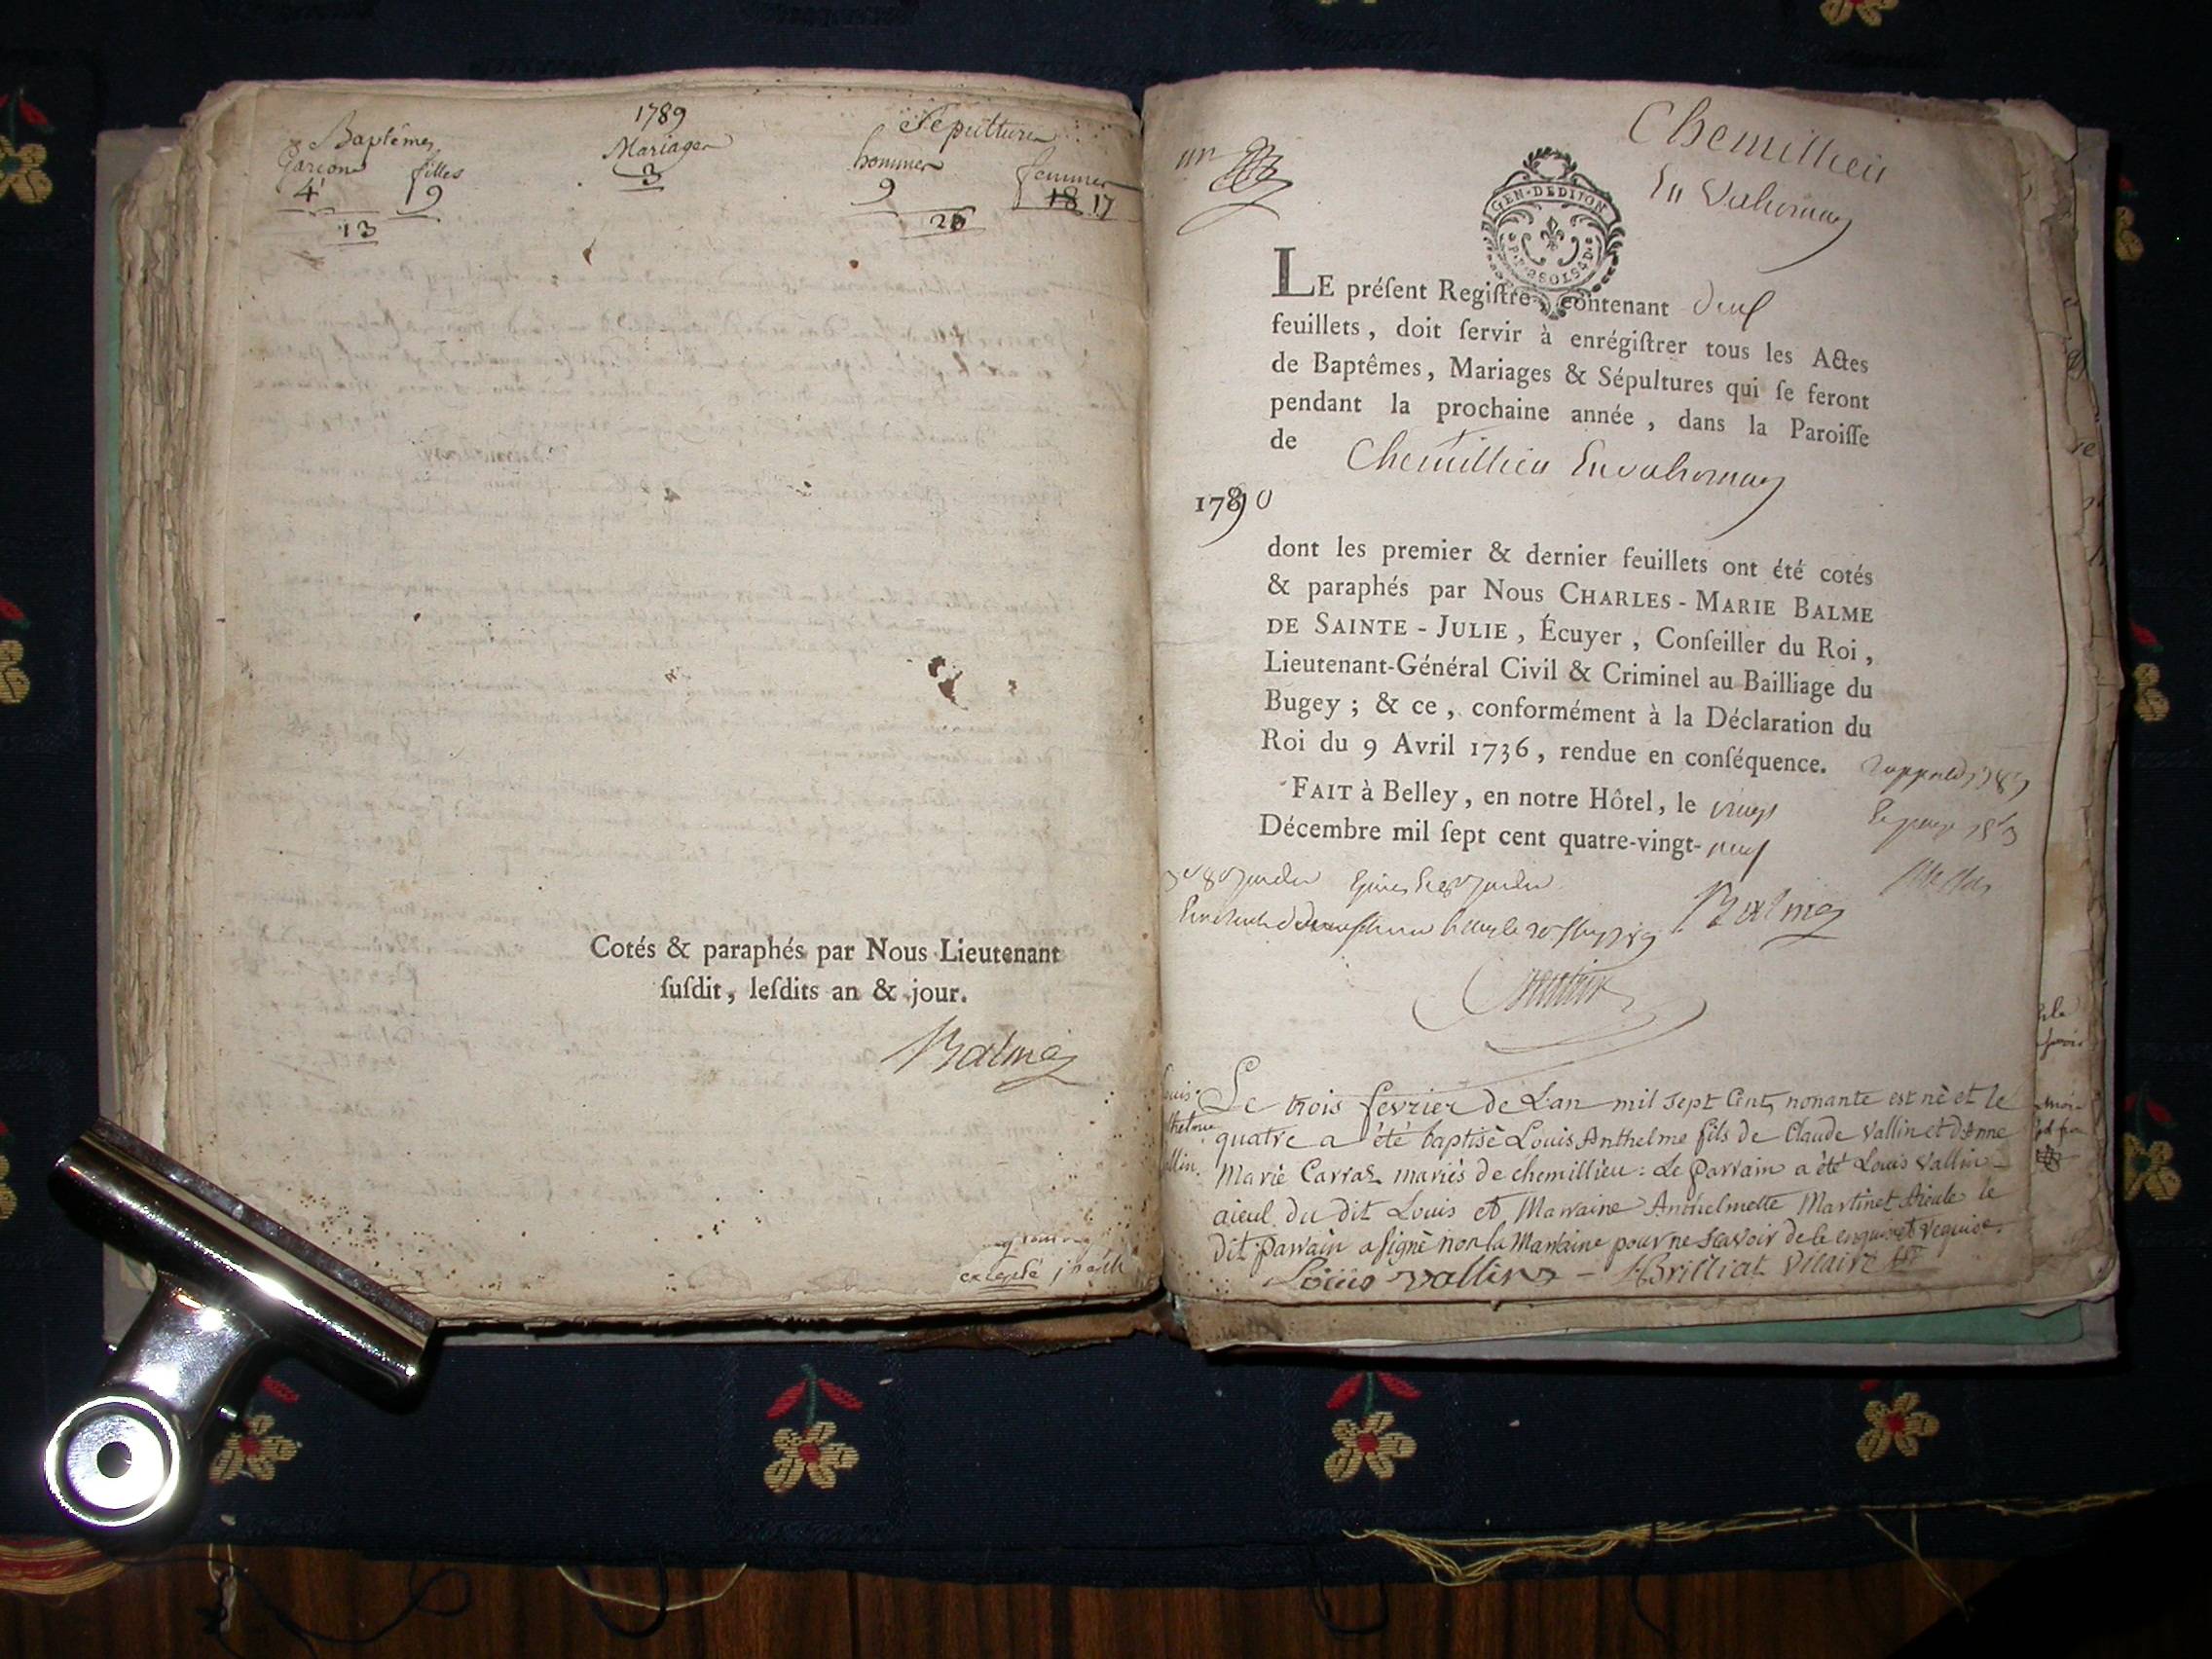 1789
Baptêmes Mariages Sepultures
Garçons filles hommes femmes
4 9 3 9 18 17
13 26
Cotés & paraphés par Nous Lieutenant
ſuſdit, leſdits an & jour.
Balme
excepté
un
Chemillieu
En Valromey
GEN·DEDIJON
LE préſent Regiſtre, contenant
feuillets, doit ſervir à enrégiſtrer tous les Actes
de Baptêmes, Mariages & Sépultures qui ſe feront
pendant la prochaine année, dans la Paroiſſe
de Chemillieu En valromey
1790
dont les premier & dernier feuillets ont été cotés
& paraphés par Nous CHARLES-MARIE BALME
DE SAINTE-JULIE, Écuyer, Conſeiller du Roi,
Lieutenant-Général Civil & Criminel au Bailliage du
Bugey; & ce, conformément à la Déclaration du
Roi du 9 Avril 1736, rendue en conſéquence.
FAIT à Belley, en notre Hôtel, le vingt
Décembre mil ſept cent quatre-vingt-neuf
Balme
Le trois fevrier de L'an mil sept Cent nonante est né et le
quatre a été baptisé Louis Anthelme fils de Claude Vallin et d'Anne
Marie Carraz mariés de chemillieu: Le parrain a été Louis Vallin
aieul du dit Louis et Marraine Anthelmette Martinet Aieule le
dit parrain a signé non la Marraine pour ne scavoir de ce enquise et requise.
Louis vallin - Brilliat Vicaire